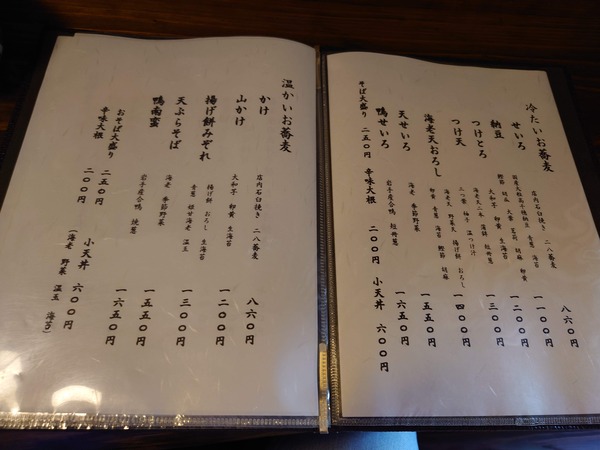 冷たいお蕎麦
せいろ 店内石臼挽き 二八蕎麦 八六〇円
納豆 国産大粒高千穂納豆 青葱 海苔 一一〇〇円
鰹節 胡瓜 大葉 茗荷 胡麻 卵黄
つけとろ 大和芋 卵黄 生海苔 蒲鉾 短冊葱 一二〇〇円
つけ天 海老天二本 一三〇〇円
二つ葉 柚子 温つけ汁
海老天おろし 海老天 野菜天 揚げ餅 おろし 一四〇〇円
卵黄 青葱 海苔 鰹節 胡麻
天せいろ 海老 季節野菜 一五五〇円
鴨せいろ 岩手産合鴨 短冊葱 一六五〇円
そば大盛り 二五〇円 辛味大根 二〇〇円 小天丼 六〇〇円
温かいお蕎麦
かけ 店内石臼挽き 二八蕎麦 八六〇円
山かけ 大和芋 卵黄 生海苔 一二〇〇円
揚げ餅みぞれ 揚げ餅 おろし 生海苔 一三〇〇円
青葱 甘海老 温玉
天ぷらそば 海老 季節野菜 一五五〇円
鴨南蛮 岩手産合鴨 焼葱 一六五〇円
おそば大盛り 二五〇円
辛味大根 二〇〇円
小天丼 六〇〇円
(海老 野菜 温玉 海苔)